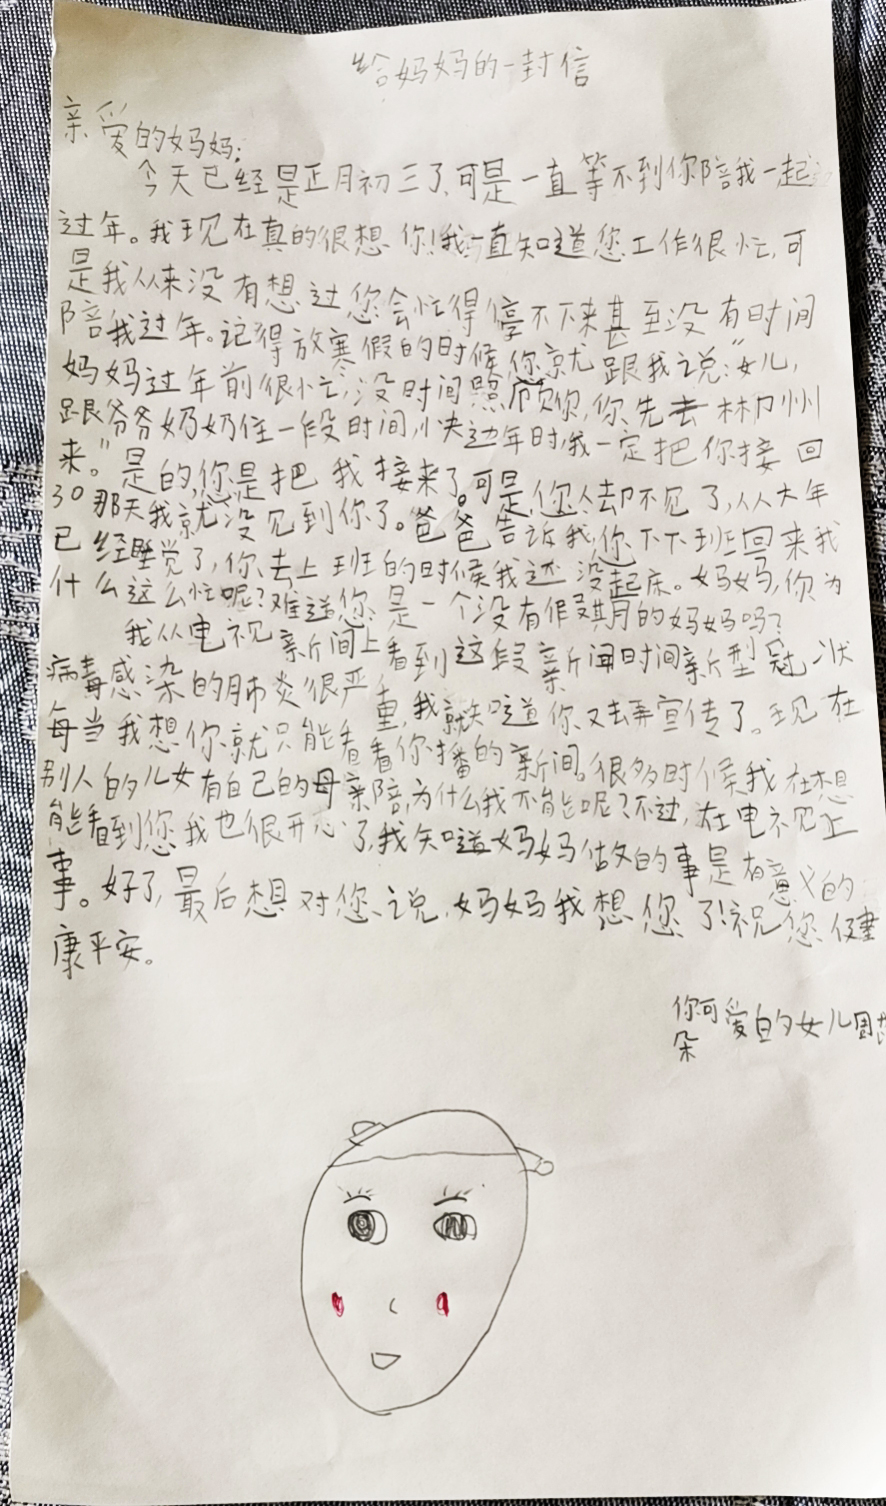 给妈妈的一封信
亲爱的妈妈:
今天已经是正月初三了,可是一直等不到你陪我一起
过年。我现在真的很想你!我一直知道您工作很忙,可
是我从来没有想过您会忙得停不下来甚至没有时间
陪我过年。记得放寒假的时候你就跟我说:“女儿,
妈妈过年前很忙,没时间照顾你,你先去柳州
跟爷爷奶奶住一段时间,快过年时,我一定把你接回
来。”是的,您是把我接来了。可是,您却不见了,从大年
30那天我就没见到你了。爸爸告诉我,您下下班回来我
已经睡觉了,你去上班的时候我还没起床。妈妈,你为
什么这么忙呢?难道您是一个没有假期的妈妈吗?
我从电视新闻上看到这段新闻时间新型冠状
病毒感染的肺炎很严重,我就知道你又去弄宣传了。现在
每当我想你就只能看看你播的新闻。很多时候我在想
别人的儿女有自己的母亲陪,为什么我不能呢?不过,在电视上
能看到您我也很开心了,我知道妈妈做的事是有意义的
事。好了,最后想对您说,妈妈我想您了!祝您健
康平安。
你可爱的女儿周
朵